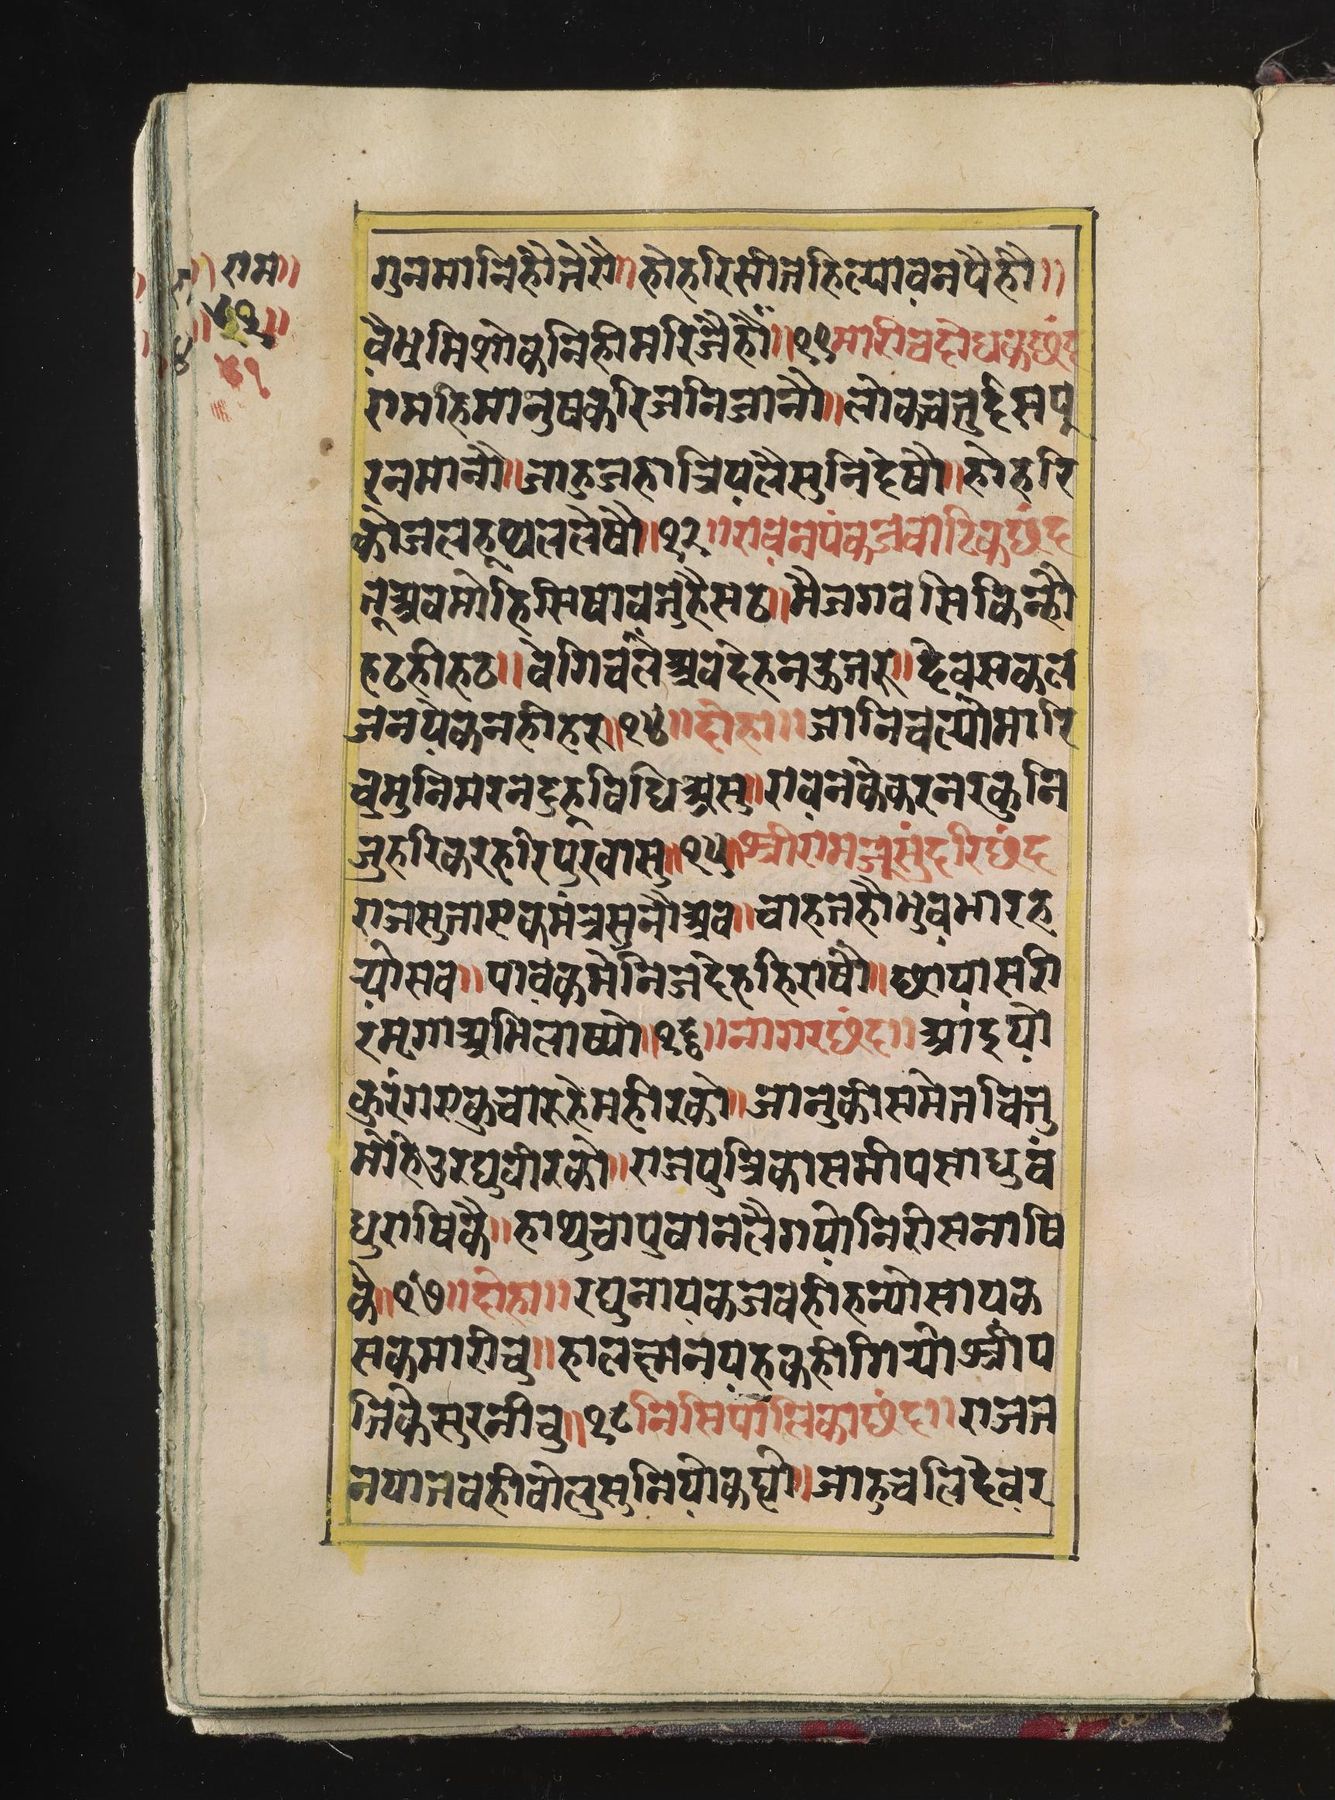 राम॥
४१॥
४१
गुनमानिहौनेरौ॥हौहरिसीतहिल्यावनपैहौ॥
वैभुमिशोकनिहीमरिजैहौं॥११मारीचदोधकछंद
रामहिमानुषकरिजनिजानौ॥लोकचतुर्दसपू
रनमानौ॥जाहुजहात्रियलैसुनिदेषौ॥हौहरि
कौजलहूथललेषौ॥१२॥रावनपंकजवाटिकछंद
तूअवमोहिसिषावतुहैसठ॥मैजगवसिकिन्हौ
हठहीहठ॥वेगिचलैअवदेहनऊतरू॥देवसकल
जनयेकनहीहरू॥१४॥दोहा॥जानिचल्योमारि
चुमुनिमरनदुहूविधिआसु॥रावनकेकरनरकुनि
जुहरिकरहरिपुरवासु॥१५॥श्रीरामजूसुंदरिछंद
राजसुताएकमंत्रसुनौअव॥चाहतहौभुवभारह
र्‍योसव॥पावकमेनिजदेहहिराषौ॥छायासरी
रंमृगाअभिलाष्यो॥१६॥नागरछंद॥आंइयो
कुरंगएकुचारुहेमहीरको॥जानुकीसमेतचितु
मोहिउरघुवीरको॥राजपुत्रिकासमीपसाधुवं
धुराषिकै॥हाथुचापुवानलैगयोनिरीसनाषि
कै॥१७॥दोहा॥रघुनायकजवहीहन्योसायक
सकमारीचु॥हालछमनयहकहीगिर्‍योश्रीप
तिकेसुरनीचु॥१८निसिपालिकाछंद॥राजत
नयातवहीवोलुसुनियोकह्यो॥जाहुचलिदेवर